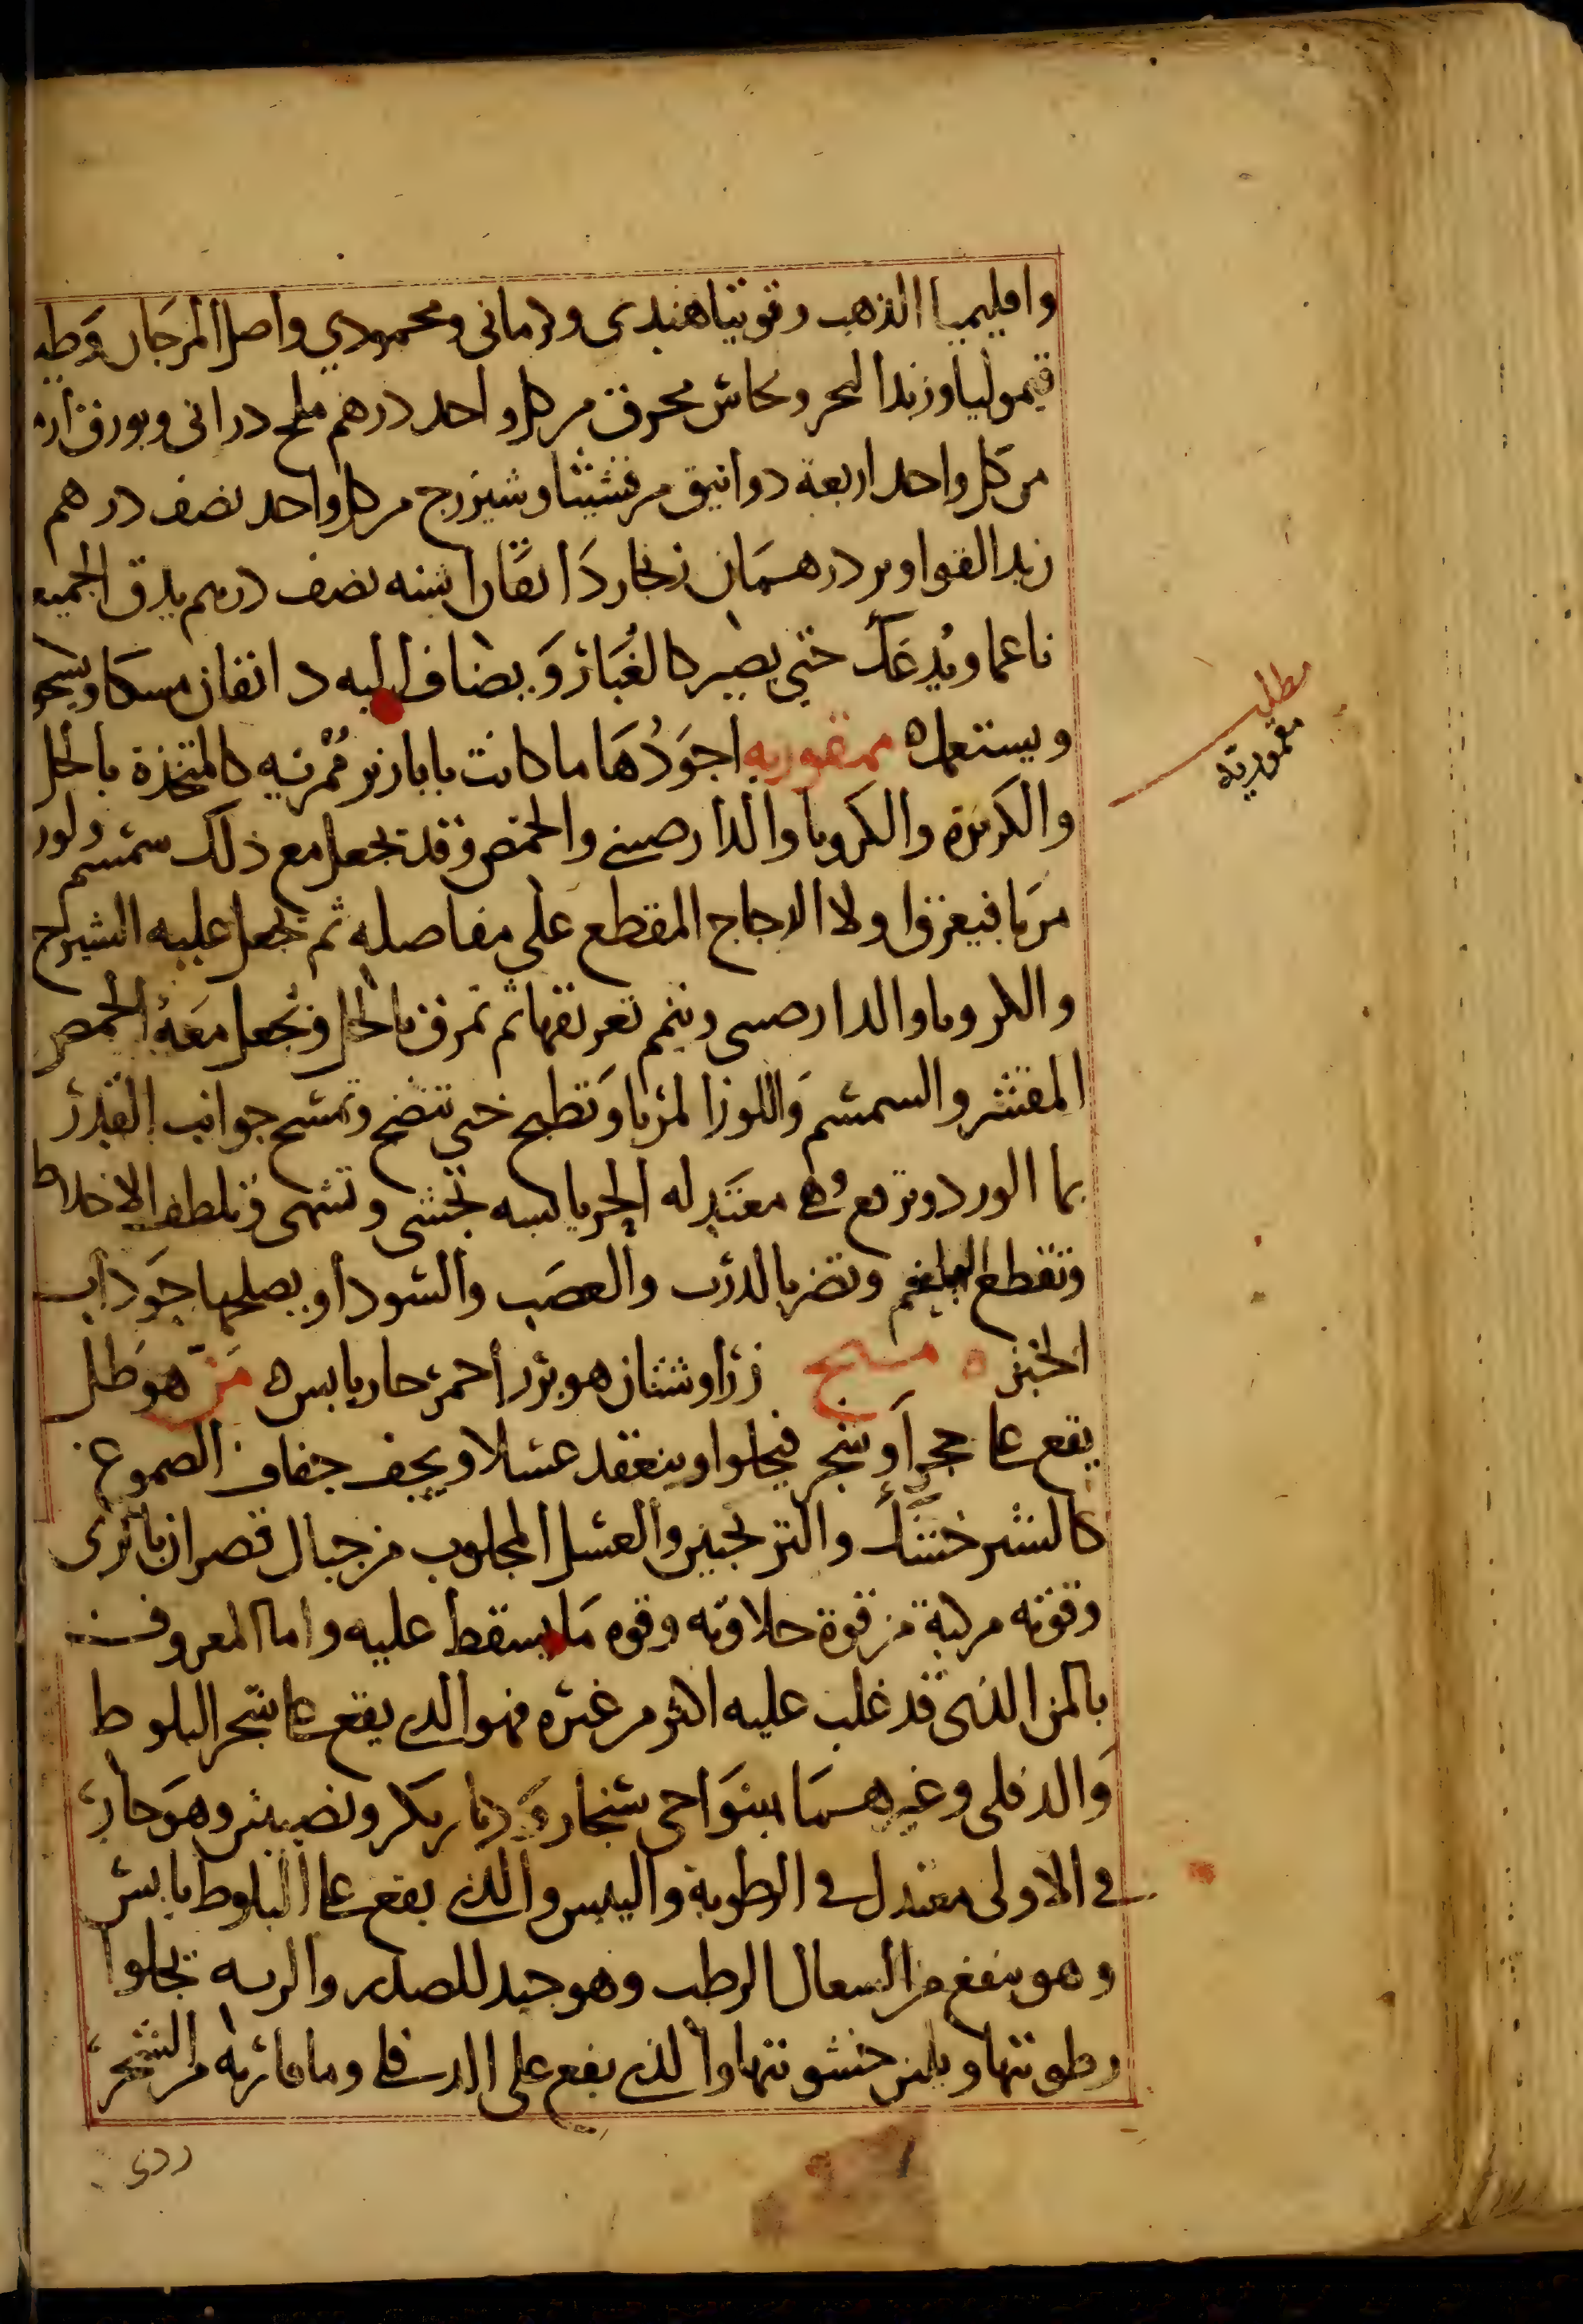 واقليميا الذهب وتوتيا هندى وكرمانى ومحمودي واصل المرجان وطين
قيموليا وزبد البحر ونحاس محرق من كل واحد درهم ملح درانى وبورق
من كل واحد اربعة دوانيق مرقشيثا وشيزرج من كل واحد نصف درهم
زبد القواوير درهمان زنجار دانقان اشنه نصف درهم يدق الجميع
ناعما ويدعك حتى يصير كالغبار ويضاف اليه دانقان مسكا
ويستعمل ه ممقوريه اجودها ما كانت بابازير ممرئيه كالمتخذة بالخل
والكزبرة والكرويا والدارصينى والحمص وقد يجعل مع ذلك سمسم ولوز
مربا فيعرق اولا الدجاج المقطع على مفاصله ثم يجعل عليه الشيرج
والكرويا والدارصينى ويتمم تعريقها ثم تمرق بالخل ويجعل معه الحمص
المقشر والسمسم واللوز المربا وتطبخ حتى تنضج وتمسح جوانب القدر
بما الورد وترفع وهى معتدله الحر يابسه تجشى وتشهى وتلطف الاخلاط
وتقطع البلغم وتضر بالذرب والعصب والسودا ويصلحها جوداب
الخبز ه زراوشنان هو بزر احمر حار يابس ه من هو طل
يقع على حجر او شجر فيحلوا وينعقد عسلا ويجف جفاف الصموغ
كالشيرخشك والترنجبين والعسل المجلوب من جبال قصران بالرى
وقوته مركبة من قوة حلاوته وقوه ما يسقط عليه واما المعروف
بالمن الذى قد غلب عليه اكثر من غيره فهو الذى يقع على شجر البلوط
والدفلى وغيرهما بنواحى سنجار وديار بكر ونصيبين وهو حار
فى الاولى معتدل فى الرطوبة واليبس والذى يقع على البلوط يابس
وهو ينفع من السعال الرطب وهو جيد للصدر والريه يجلوا
رطوبتها ويلين خشونتها والذى يقع على الدفلى وما قاربه من الشجر
ردى
مطلب
مقموريه